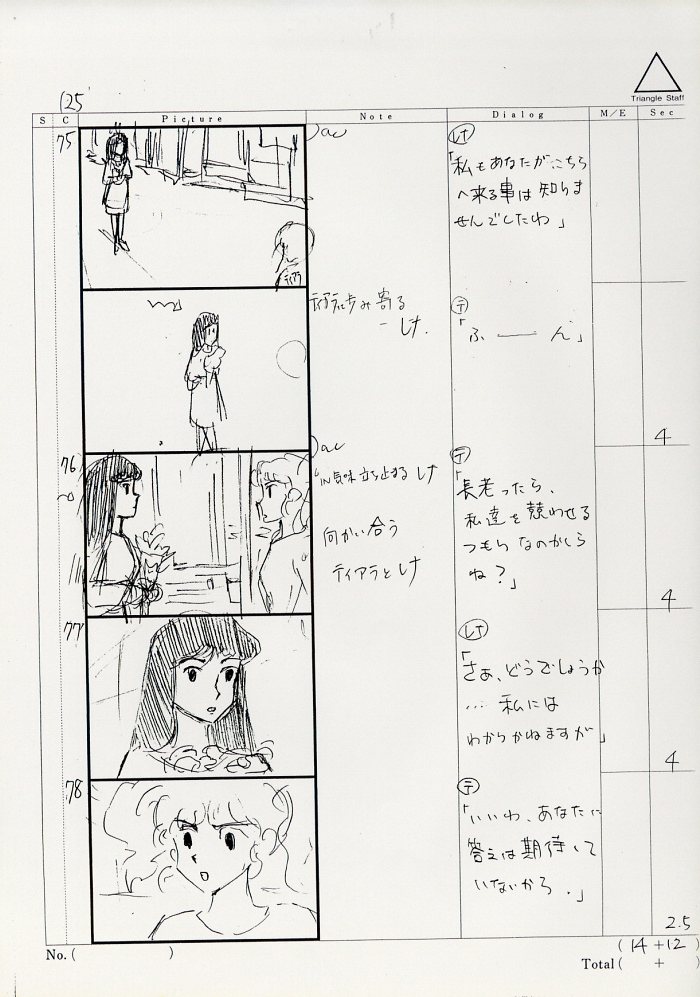 Triangle Staff
125
S C Picture Note Dialog M/E Sec
75
ac
レナ
「私もあなたがこちら
へ来る事は知りま
せんでしたわ」
ティアラ
ティアラに歩み寄る
ーレナ.
テ
「ふ――ん」
4
76
ac
IN気味立ち止まるレナ
向かい合う
ティアラとレナ
テ
「長老ったら、
私達を競わせる
つもりなのかしら
ね?」
4
77
レナ
「さあ、どうでしょうか
… 私には
わかりかねますが」
4
78
テ
「いいわ、あなたに
答えは期待して
いないから.」
2.5
(14+12)
No.( )
Total( + )